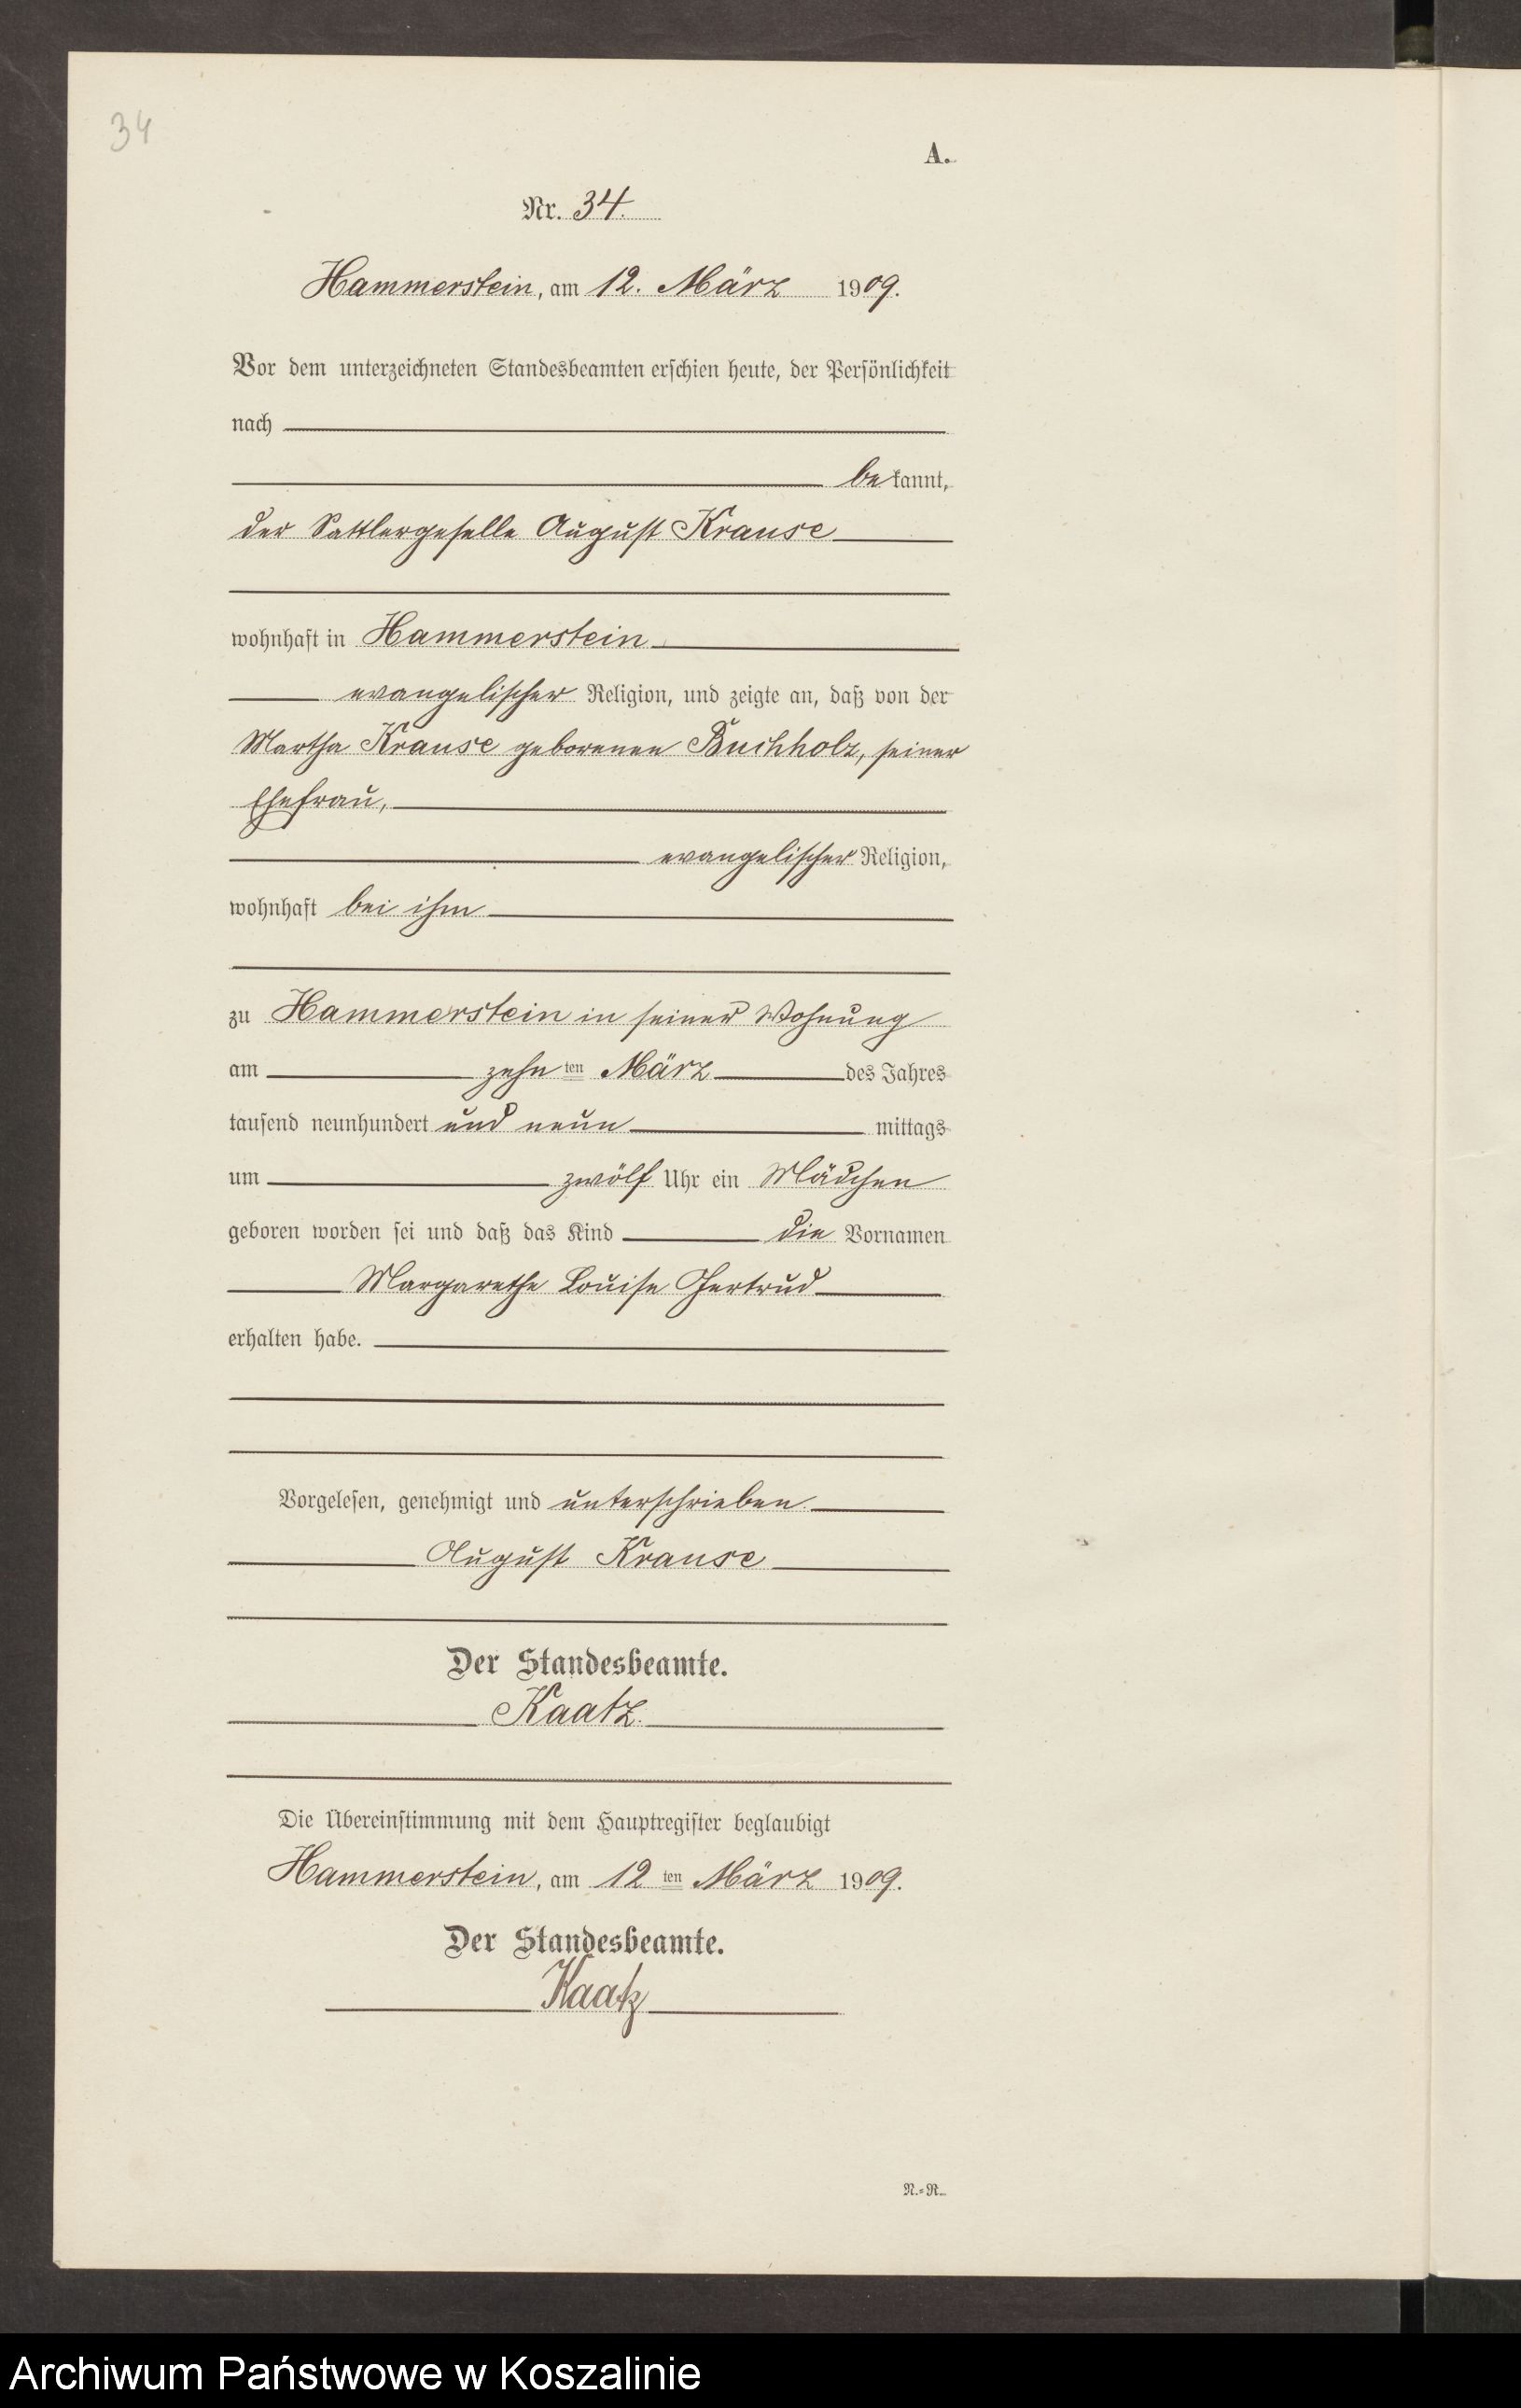 34
A.
Nr. 34.
Hammerstein, am 12. März 1909.
Vor dem unterzeichneten Standesbeamten erschien heute, der Persönlichkeit
nach
bekannt,
der Sattlergeselle August Krause
wohnhaft in Hammerstein
evangelischer Religion, und zeigte an, daß von der
Martha Krause geborenen Buchholz, seiner
Ehefrau,
evangelischer Religion,
wohnhaft bei ihm
zu Hammerstein in seiner Wohnung
am zehnten März des Jahres
tausend neunhundert und neun mittags
um zwölf Uhr ein Mädchen
geboren worden sei und daß das Kind die Vornamen
Margarethe Louise Gertrud
erhalten habe.
Vorgelesen, genehmigt und unterschrieben.
August Krause
Der Standesbeamte.
Kaatz.
Die Übereinstimmung mit dem Hauptregister beglaubigt
Hammerstein, am 12ten März 1909.
Der Standesbeamte.
Kaatz
N.=R.
Archiwum Państwowe w Koszalinie